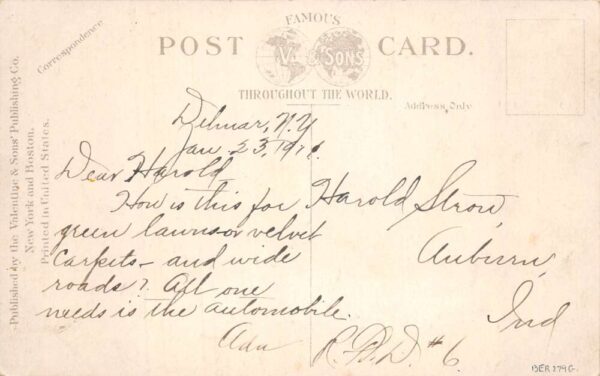 FAMOUS
POST CARD.
V. & SONS
THROUGHOUT THE WORLD.
Correspondence
Address Only
Published by the Valentine & Sons' Publishing Co.
New York and Boston.
Printed in United States.
Delmar, N.Y
Jan. 23, 191
Dear Harold
How is this for
green lawns or velvet
carpets - and wide
roads? All one
needs is the automobile.
Harold Strow,
Auburn,
Ind
R.F.D. #6.
BER 279G.